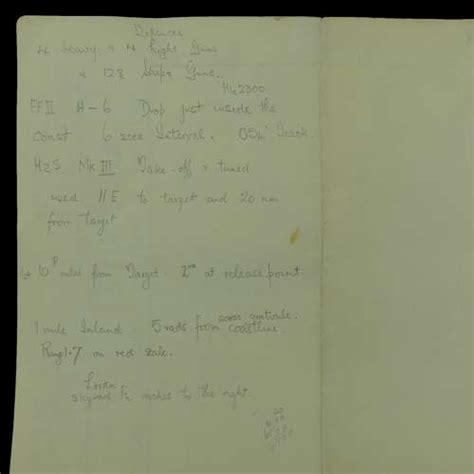 Defences
4 heavy & 4 light Guns
& 128 Ships Guns.
H42300
FFII H-6 Drop just inside the
coast 6 secs Interval. 054° Track.
H2S Mk III Take-off & tuned
used 11E to target and 20 nm
from target
10 miles from Target. 2 at release point.
1 mile Inland. 5 rads from coastline.
Ring 1.7 on red scale.
Loran
skyward ½ inches to the right.